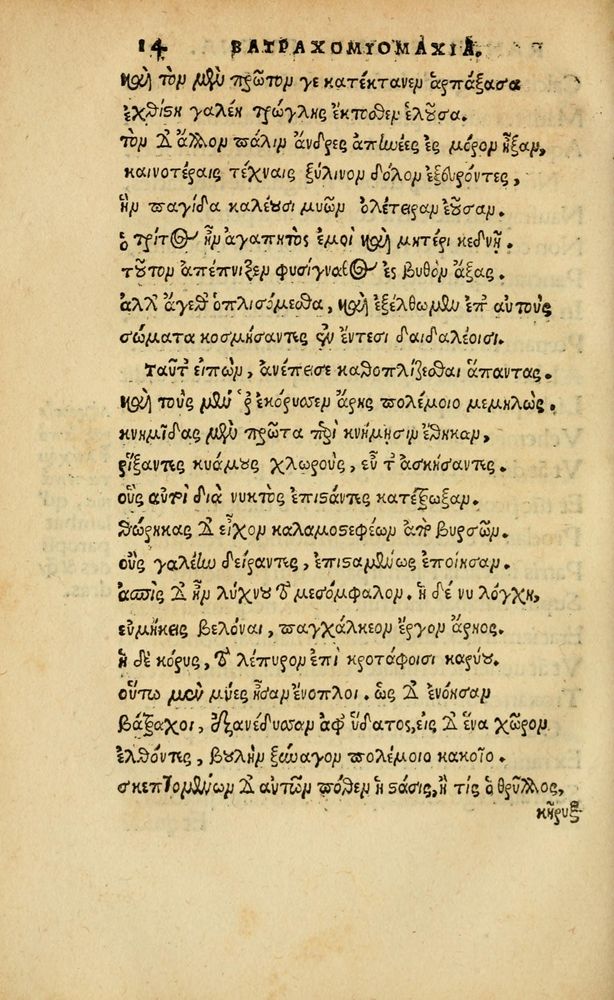 14 ΒΑΤΡΑΧΟΜΥΟΜΑΧΙΑ.
καὶ τὸν μὲν πρῶτον γε κατέκτανεν ἁρπάξασα
ἐχθίςη γαλέη τρώγλης ἔκποθεν ἑλοῦσα.
τὸν δ' ἄλλον πάλιν ἄνδρες ἀπηνέες ἐς μόρον ἦξαν,
καινοτέραις τέχναις ξύλινον δόλον ἐξευρόντες,
ἣν παγίδα καλέουσι μυῶν ὀλέτειραν ἐοῦσαν.
ὁ τρίτος ἦν ἀγαπητὸς ἐμοὶ καὶ μητέρι κεδνῇ.
τοῦτον ἀπέπνιξεν φυσίγναθος ἐς βυθὸν ἄξας.
ἀλλ' ἄγεθ' ὁπλισόμεσθα, καὶ ἐξέλθωμεν ἐπ' αὐτοὺς
σώματα κοσμήσαντες ἐν ἔντεσι δαιδαλέοισι.
Ταῦτ' εἰπὼν, ἀνέπεισε καθοπλίζεσθαι ἅπαντας.
καὶ τοὺς μέν ῥ' ἐκόρυσσεν ἄρης πολέμοιο μεμηλώς.
κνημῖδας μὲν πρῶτα περὶ κνήμῃσιν ἔθηκαν,
ῥήξαντες κυάμους χλωροὺς, εὖ τ' ἀσκήσαντες.
οὓς αὐτοὶ διὰ νυκτὸς ἐπιςάντες κατέτρωξαν.
θώρηκας δ' εἶχον καλαμοςεφέων ἀπὸ βυρσῶν.
οὓς γαλέην δείραντες, ἐπιςαμένως ἐποίησαν.
ἀσπὶς δ' ἦν λύχνου τὸ μεσόμφαλον. ἡ δέ νυ λόγχη,
εὐμήκεις βελόναι, παγχάλκεον ἔργον ἄρηος.
ἡ δὲ κόρυς, τὸ λέπυρον ἐπὶ κροτάφοισι καρύου.
οὕτω μὲν μύες ἦσαν ἔνοπλοι. ὡς δ' ἐνόησαν
βάτραχοι, ἐξανέδυσαν ἀφ' ὕδατος, εἰς δ' ἕνα χῶρον
ἐλθόντες, βουλὴν ξύναγον πολέμοιο κακοῖο.
σκεπτομένων δ' αὐτῶν πόθεν ἡ ςάσις, ἢ τίς ὁ θρῦλλος,
κῆρυξ